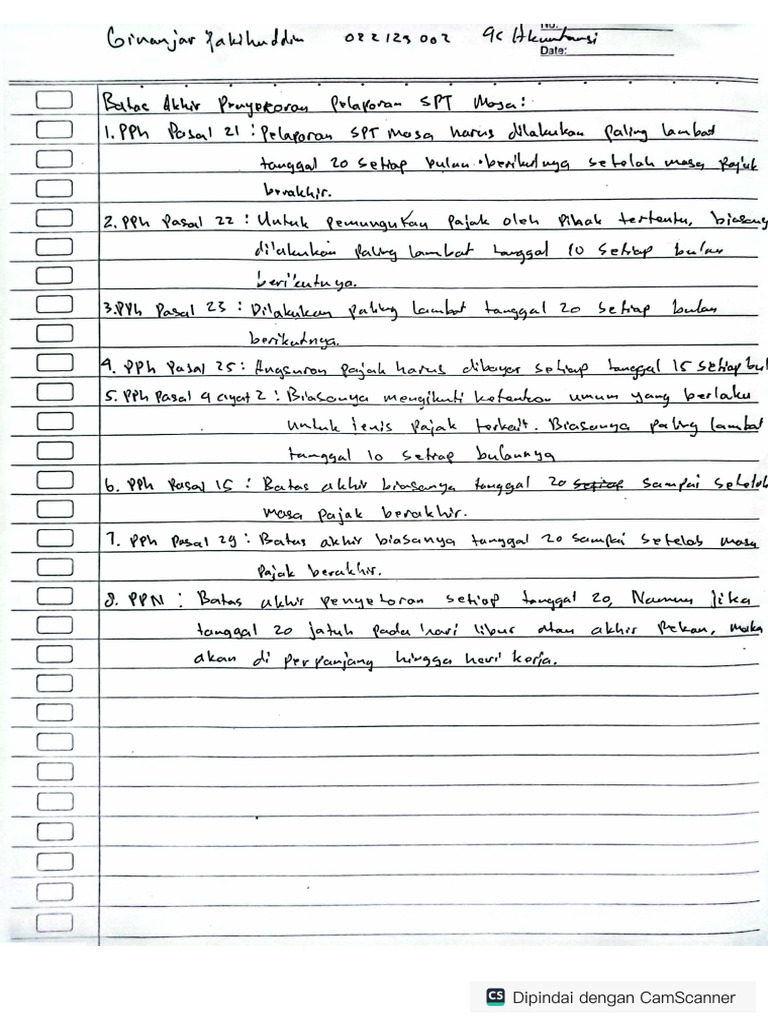 Ginanjar Zakihuddin 022123002 9C Akuntansi
No.
Date:
Batas Akhir Penyetoran Pelaporan SPT Masa:
1. PPh Pasal 21 : Pelaporan SPT masa harus dilakukan paling lambat
tanggal 20 setiap bulan berikutnya setelah masa pajak
berakhir.
2. PPh Pasal 22 : Untuk pemungutan pajak oleh pihak tertentu, biasany
dilakukan paling lambat tanggal 10 setiap bulan
berikutnya.
3. PPh Pasal 23 : Dilakukan paling lambat tanggal 20 setiap bulan
berikutnya.
4. PPh Pasal 25 : Angsuran pajak harus dibayar setiap tanggal 15 setiap bul
5. PPh Pasal 4 ayat 2 : Biasanya mengikuti ketentuan umum yang berlaku
untuk jenis pajak terkait. Biasanya paling lambat
tanggal 10 setiap bulannya
6. PPh Pasal 15 : Batas akhir biasanya tanggal 20 setiap sampai setelah
masa pajak berakhir.
7. PPh Pasal 29 : Batas akhir biasanya tanggal 20 sampai setelah masa
pajak berakhir.
8. PPN : Batas akhir penyetoran setiap tanggal 20, Namun jika
tanggal 20 jatuh pada hari libur atau akhir pekan, maka
akan di perpanjang hingga hari kerja.
CS Dipindai dengan CamScanner